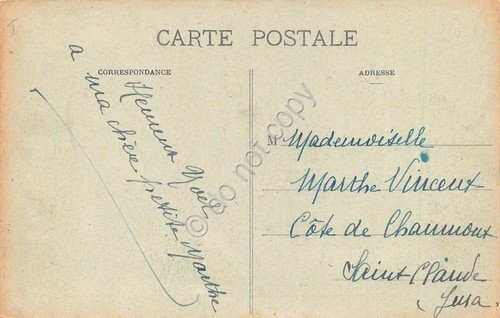 CARTE POSTALE
CORRESPONDANCE
ADRESSE
Heureux Noël
a ma chère petite Marthe
M Mademoiselle
Marthe Vincent
Côte de Chaumont
Saint Claude
Jura
© do not copy